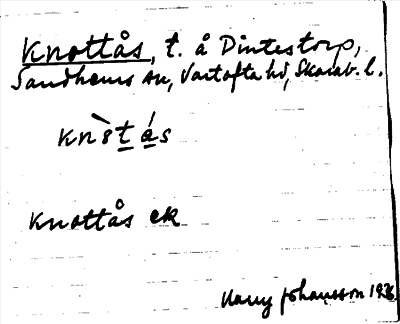 Knottås, t. å Dintestorp,
Sandhems sn, Vartofta hd, Skarab. l.
kn`ɷt á s
Knottås ek
Harry Johansson 1926